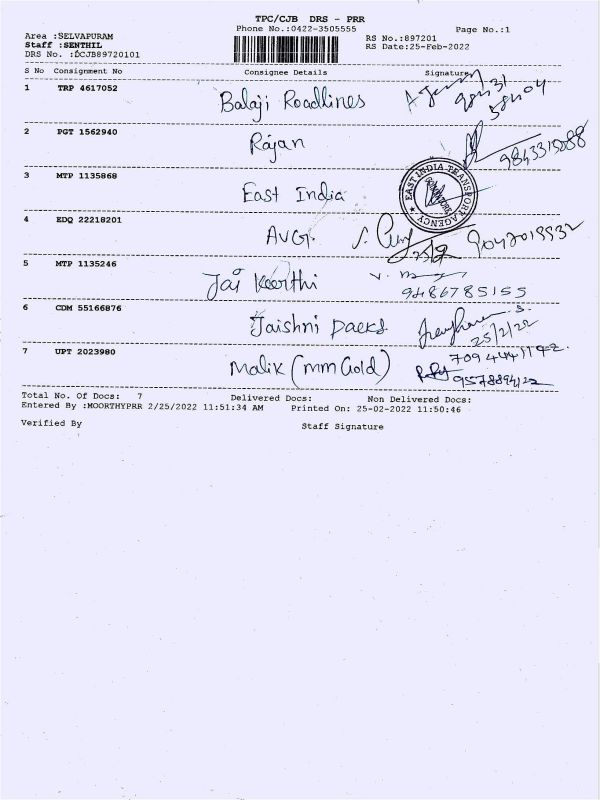 TPC/CJB DRS - PRR
Phone No.:0422-3505555 Page No.:1
Area :SELVAPURAM RS No.:897201
Staff :SENTHIL RS Date:25-Feb-2022
DRS No. :DCJB89720101
S No Consignment No Consignee Details Signature
1 TRP 4617052 Balaji Roadlines
2 PGT 1562940 Rajan
3 MTP 1135868 East India
EAST INDIA TRANSPORT AGENCY
4 EDQ 22218201 AVG. 9042019932
5 MTP 1135246 Jai Keerthi
9486785155
6 CDM 55166876 Jaishni Packs
25/2/22
7 UPT 2023980 Malik (mm Gold)
Total No. Of Docs: 7 Delivered Docs: Non Delivered Docs:
Entered By :MOORTHYPRR 2/25/2022 11:51:34 AM Printed On: 25-02-2022 11:50:46
Verified By Staff Signature